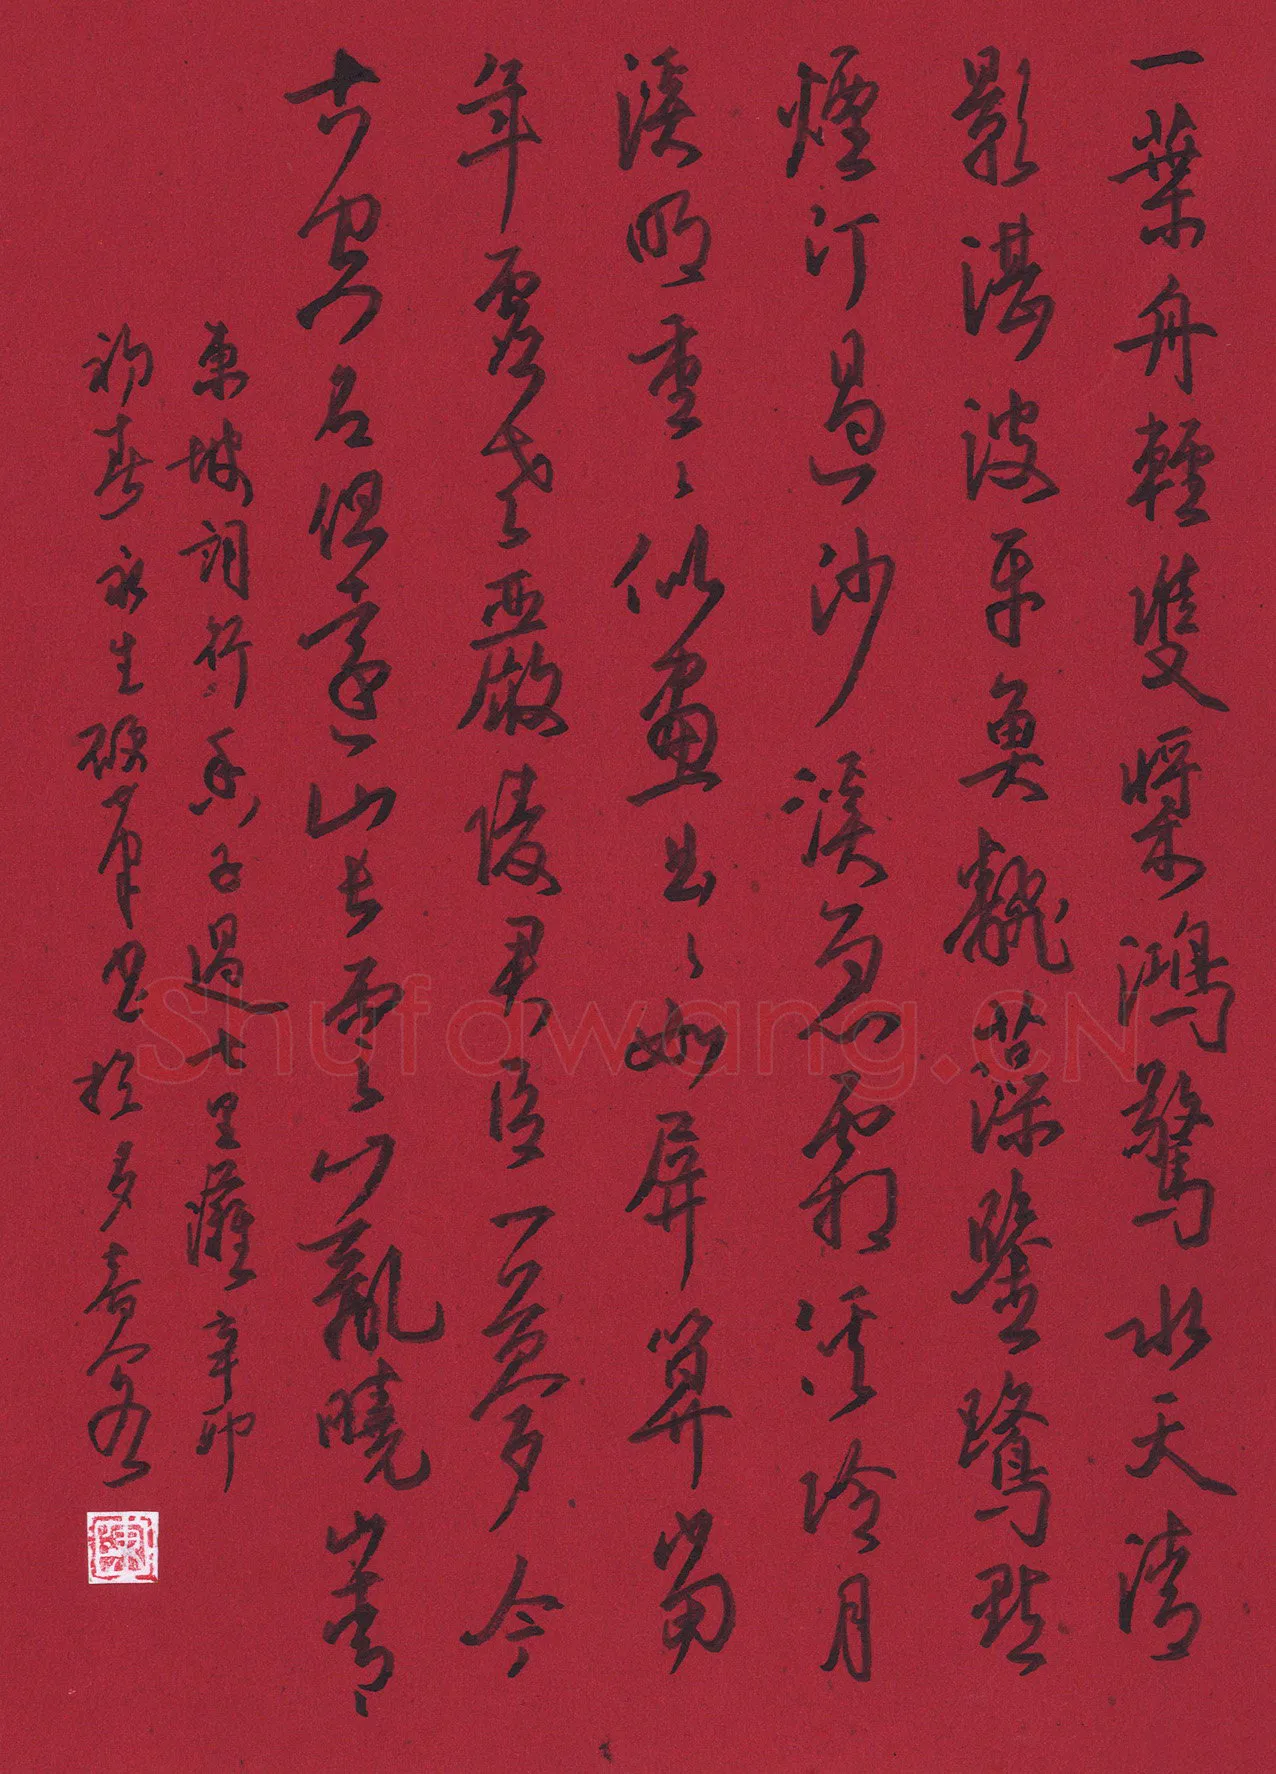 一葉舟輕雙槳鴻驚水天清
影湛波平魚飜藻鑒鷺點
煙汀過沙溪急霜溪冷月
溪明重〻似畫曲〻如屏算當
年虛老嚴陵君臣一夢今
古空名但遠山長雲山亂曉山青
東坡詞行香子過七里灘辛卯
初春永生硬筆书於
陳
Shufawang.CN